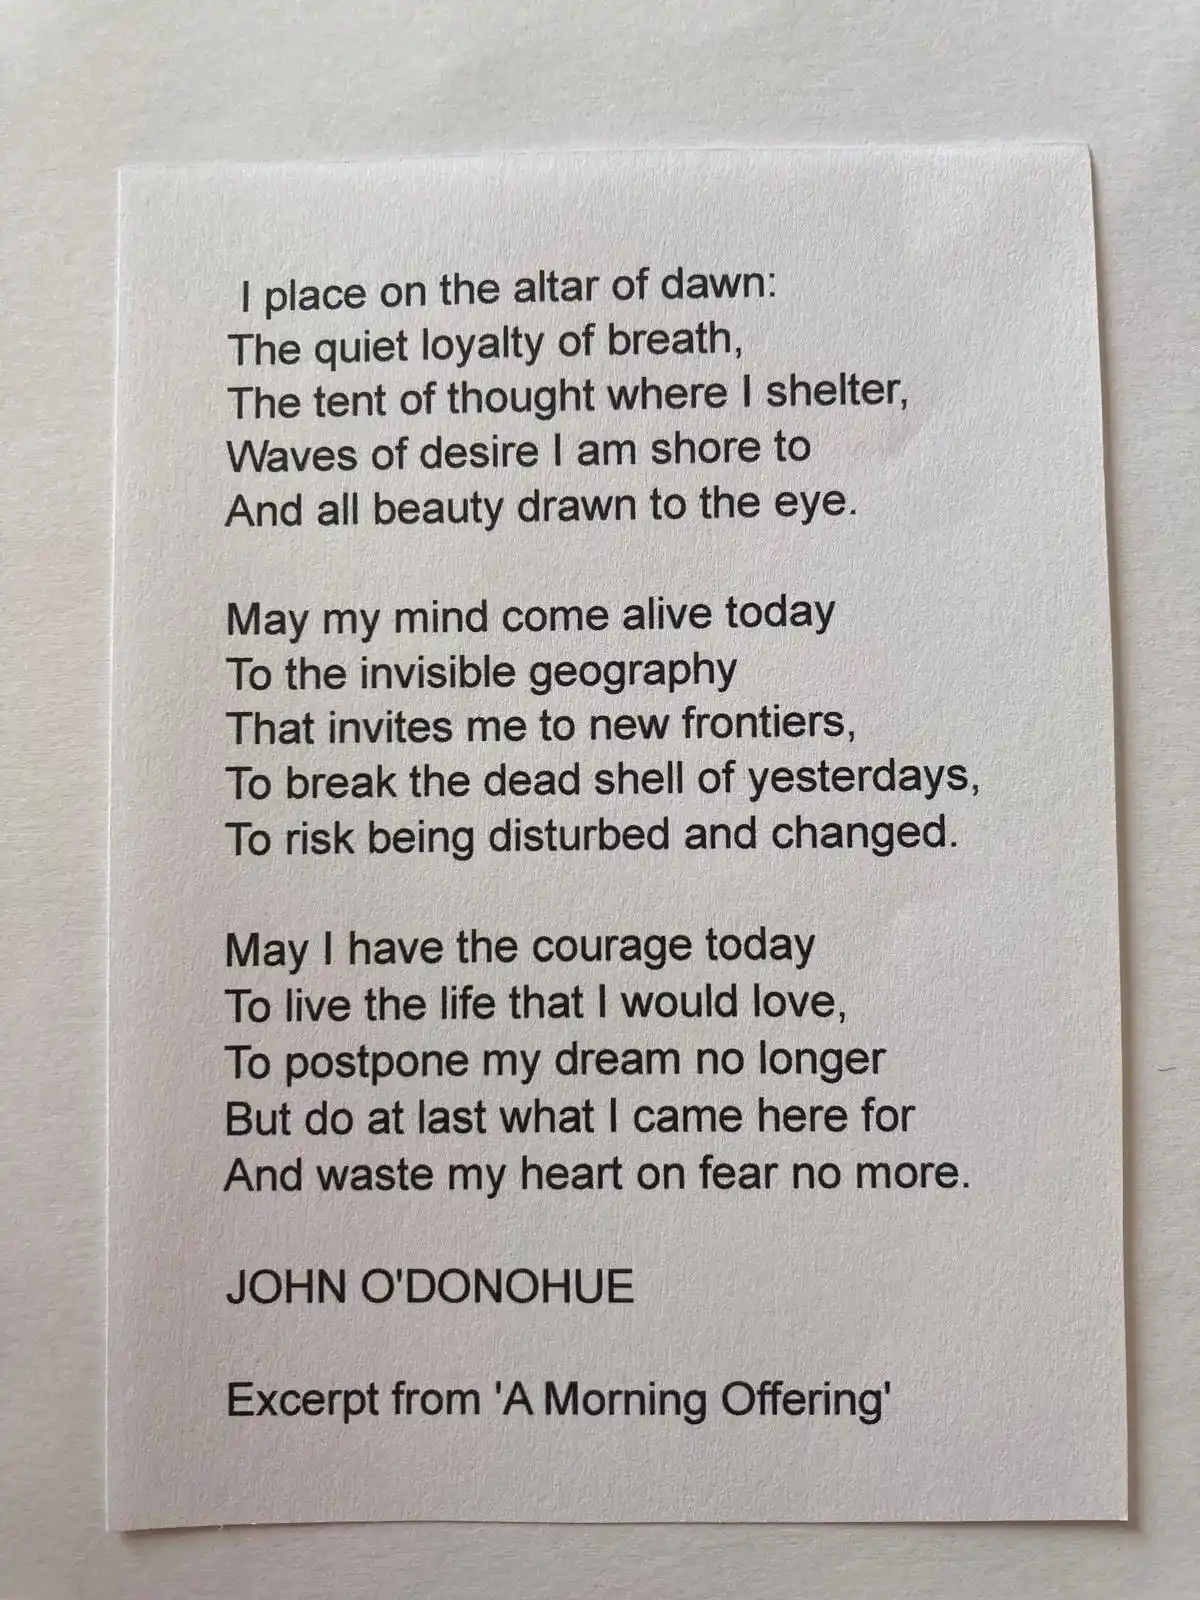 I place on the altar of dawn:
The quiet loyalty of breath,
The tent of thought where I shelter,
Waves of desire I am shore to
And all beauty drawn to the eye.

May my mind come alive today
To the invisible geography
That invites me to new frontiers,
To break the dead shell of yesterdays,
To risk being disturbed and changed.

May I have the courage today
To live the life that I would love,
To postpone my dream no longer
But do at last what I came here for
And waste my heart on fear no more.

JOHN O'DONOHUE

Excerpt from 'A Morning Offering'